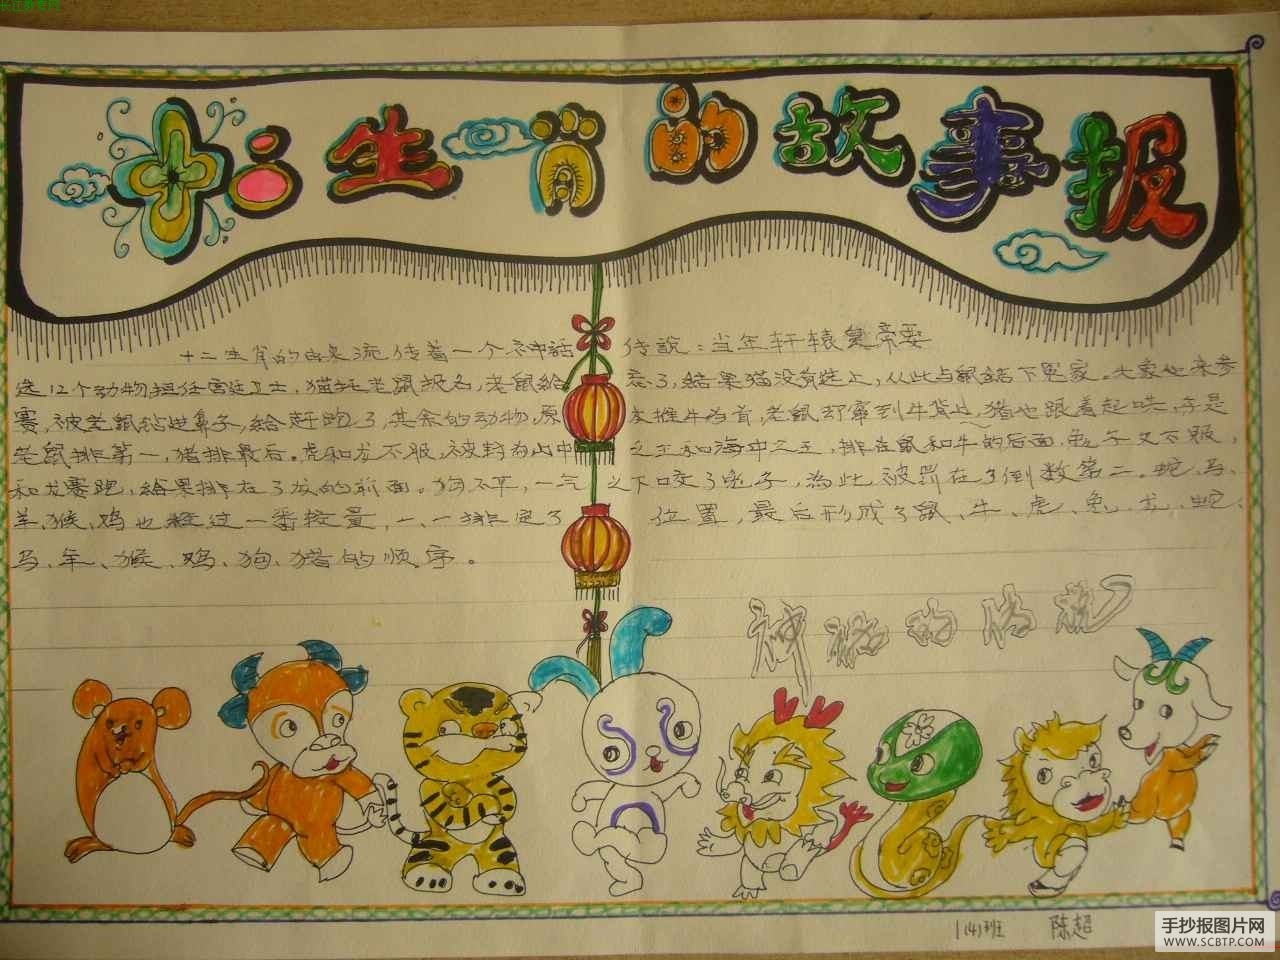 长江野考网
十二生肖的故事报
十二生肖的由来流传着一个神话传说：当年轩辕黄帝要
选12个动物担任宫廷卫士，猫托老鼠报名，老鼠给忘了，结果猫没有选上，从此与鼠结下冤家。大象也来参
赛，被老鼠钻进鼻子，给赶跑了，其余的动物，原本推牛为首，老鼠却窜到牛背上，猪也跟着起哄，于是
老鼠排第一，猪排最后。虎和龙不服，被封为山中之王和海中之王，排在鼠和牛的后面。兔子又不服，
和龙赛跑，结果排在了龙的前面。狗不平，一气之下咬了兔子，为此被罚在了倒数第二。蛇、马、
羊、猴、鸡也经过一番较量，一一排定了位置，最后形成了鼠、牛、虎、兔、龙、蛇、
马、羊、猴、鸡、狗、猪的顺序。
神秘的传说
1(4)班 陈超
手抄报图片网
WWW.SCBTP.COM